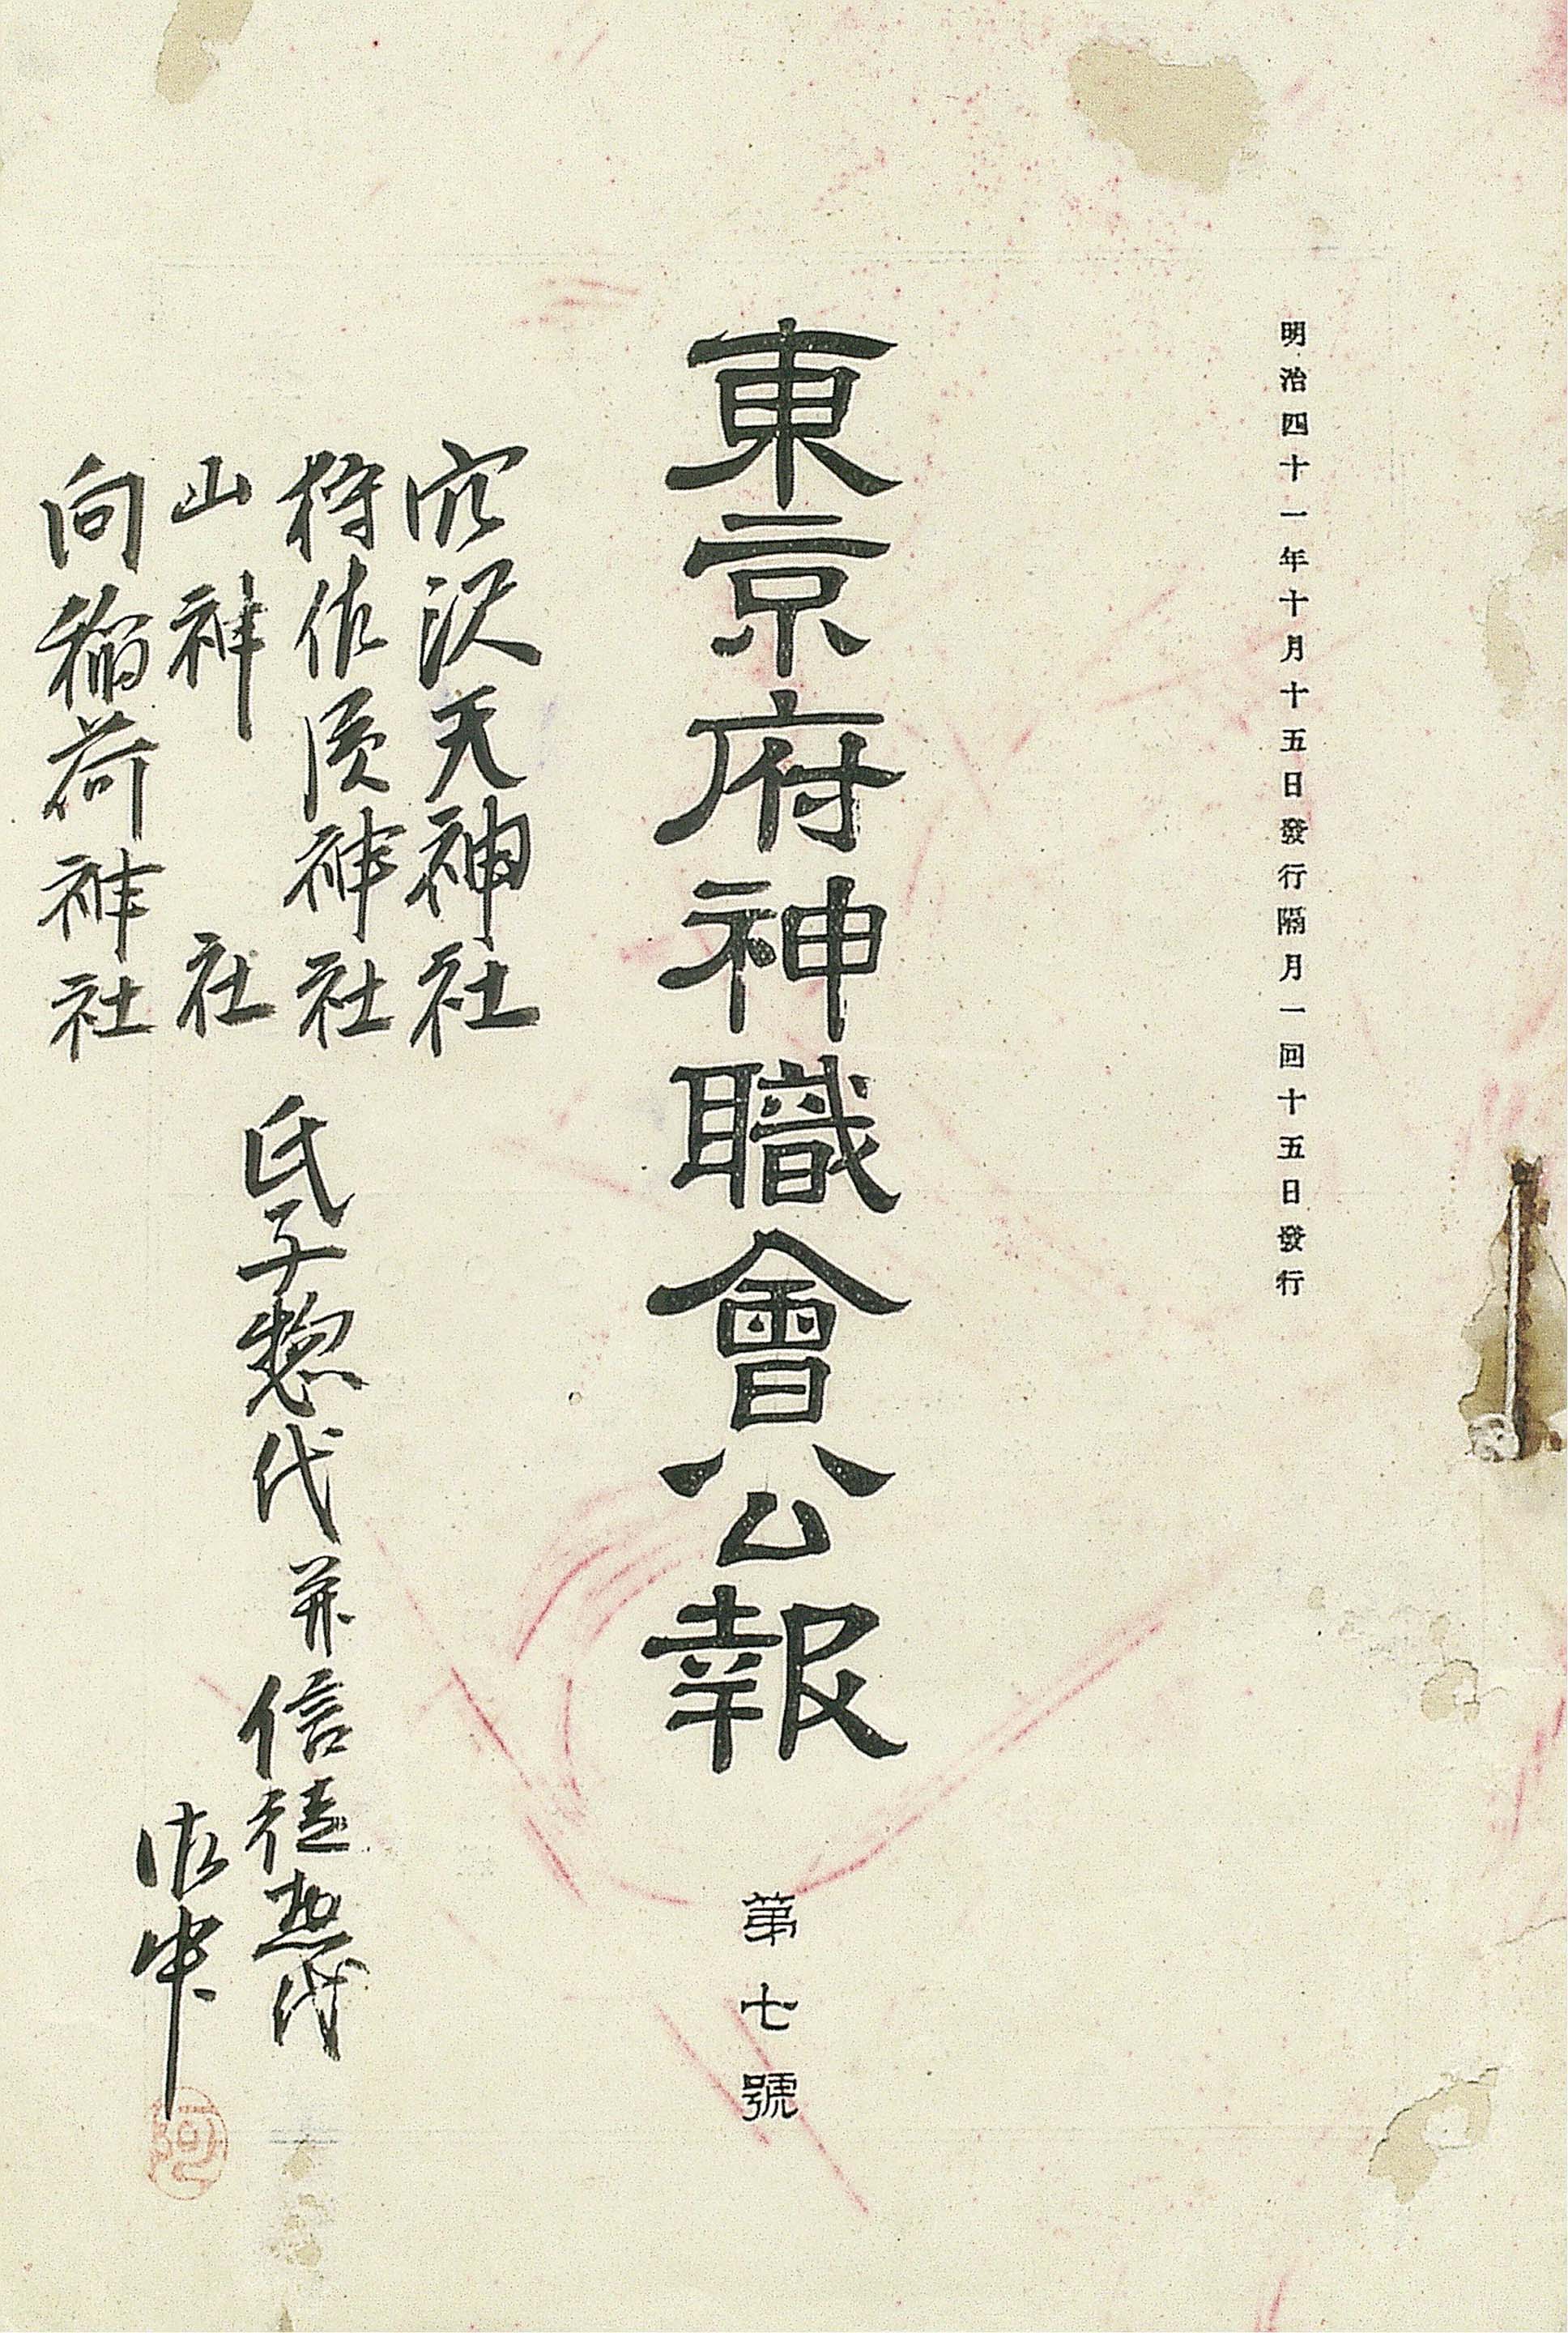 明治四十一年十月十五日發行隔月一回十五日發行
東京府神職會公報
第七號
穴沢天神社
狩佐須神社
山神社
向稲荷神社
氏子惣代并信徒惣代
御中